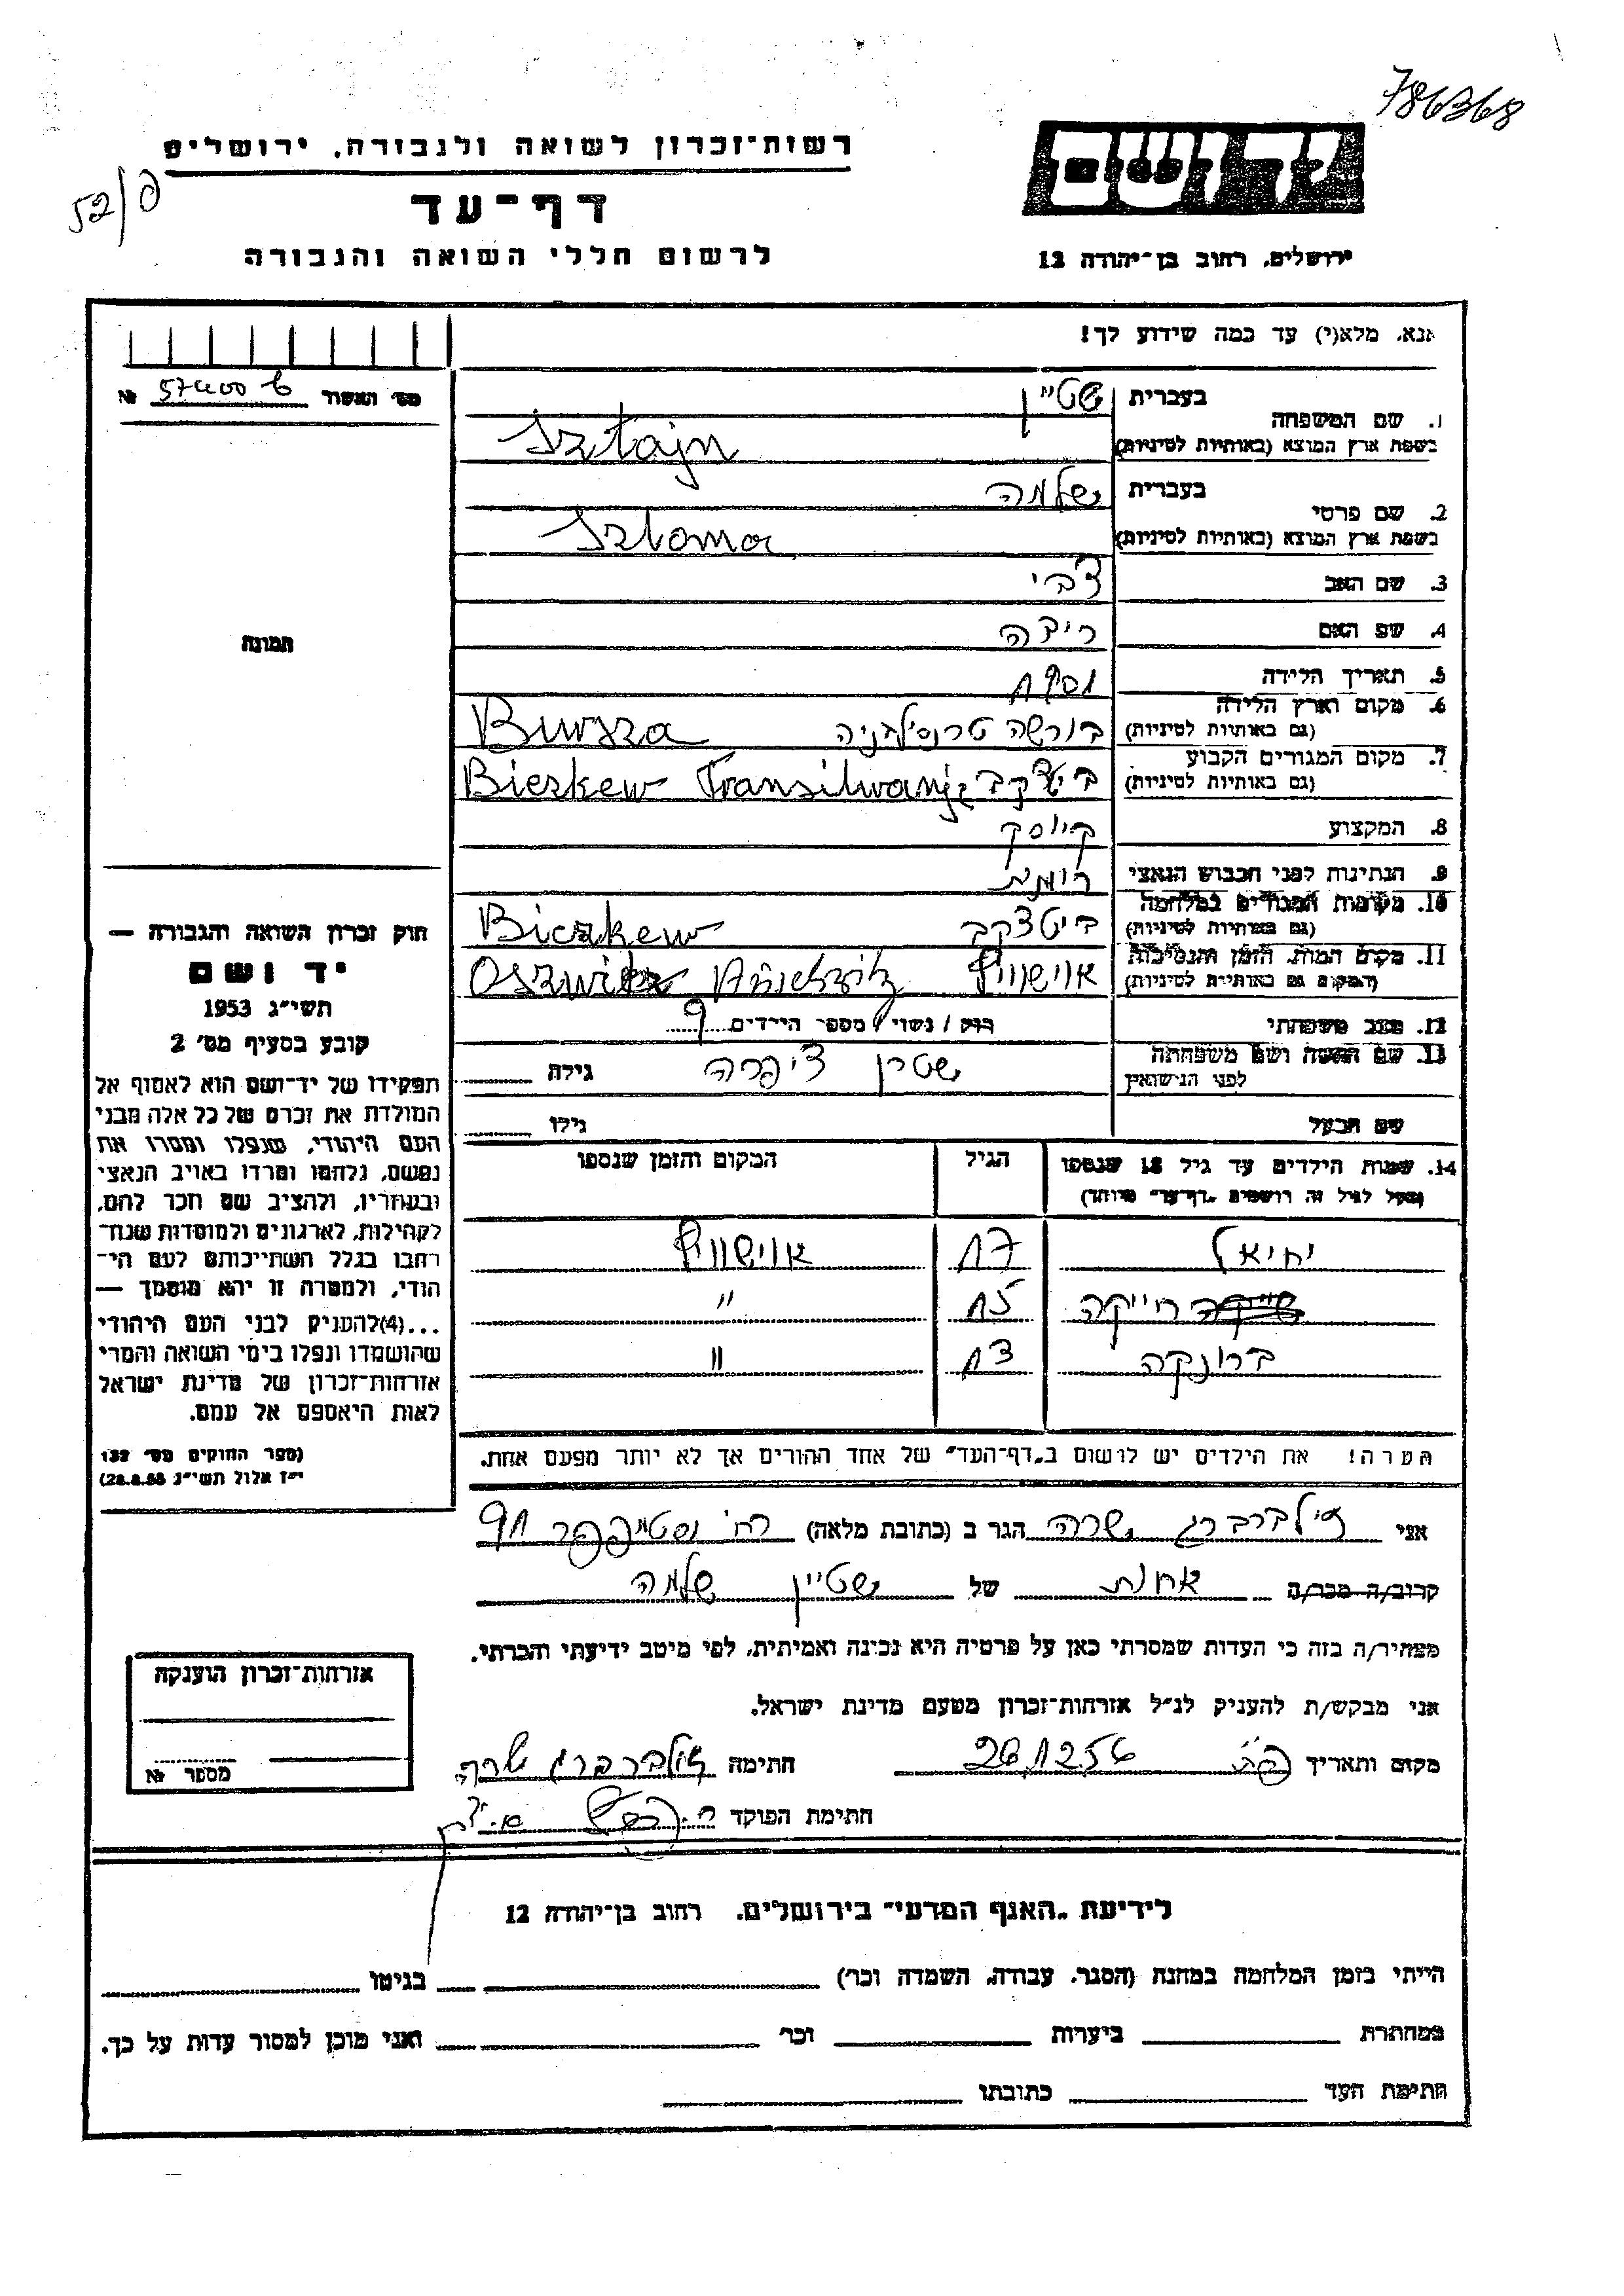 786368
יד ושם
רשות־זכרון לשואה ולגבורה, ירושלים
52/
דף־עד
לרשום חללי השואה והגבורה
ירושלים, רחוב בן־יהודה 12
אנא, מלא(י) עד כמה שידוע לך!
מס׳ האשור №
1. שם המשפחה
בעברית שטיין
בשפת ארץ המוצא (באותיות לטיניות) Sztajn
2. שם פרטי
בעברית שלמה
בשפת ארץ המוצא (באותיות לטיניות) Szloma
3. שם האב צבי
4. שם האם ריבה
5. תאריך הלידה
6. מקום וארץ הלידה (גם באותיות לטיניות) בורשה טרנסילבניה Bursza
7. מקום המגורים הקבוע (גם באותיות לטיניות) ביטצקב
8. המקצוע
9. הנתינות לפני הכבוש הנאצי רומנית
10. מקומות המגורים במלחמה (גם באותיות לטיניות) ביטצקב
11. מקום המות, הזמן והנסיבות (המקום גם באותיות לטיניות) אוישוויץ
12. מצב משפחתי רווק / נשוי / מספר הילדים 9
13. שם האשה ושם משפחתה לפני הנישואין שטרן ציפרה גילה
שם הבעל גילו
14. שמות הילדים עד גיל 18 שנספו (מעל לגיל זה רושמים „דף־עד״ מיוחד) הגיל המקום והזמן שנספו
יחיאל 17 אוישוויץ
חייקה 15 ״
ברונקה 13 ״
הערה! את הילדים יש לרשום ב„דף־העד״ של אחד ההורים אך לא יותר מפעם אחת.
תמונה
חוק זכרון השואה והגבורה —
יד ושם
תשי״ג 1953
קובע בסעיף מס׳ 2
תפקידו של יד־ושם הוא לאסוף אל
המולדת את זכרם של כל אלה מבני
העם היהודי, שנפלו ומסרו את
נפשם, נלחמו ומרדו באויב הנאצי
ובעוזריו, ולהציב שם וזכר להם,
לקהילות, לארגונים ולמוסדות שנח־
רבו בגלל השתייכותם לעם הי־
הודי, ולמטרה זו יהא מוסמך —
...(4)להעניק לבני העם היהודי
שהושמדו ונפלו בימי השואה והמרי
אזרחות־זכרון של מדינת ישראל
לאות היאספם אל עמם.
(ספר החוקים מס׳ 132
י״ז אלול תשי״ג 28.8.53)
אני זילברברג שרה הגר ב (כתובת מלאה) רח׳
קרוב/ה מכר/ה אחות של שטיין שלמה
מצהיר/ה בזה כי העדות שמסרתי כאן על פרטיה היא נכונה ואמיתית, לפי מיטב ידיעתי והכרתי.
אני מבקש/ת להעניק לנ״ל אזרחות־זכרון מטעם מדינת ישראל.
מקום ותאריך חתימה זילברברג שרה
חתימת הפוקד
אזרחות־זכרון הוענקה
מספר №
לידיעת „האגף המדעי״ בירושלים, רחוב בן־יהודה 12
הייתי בזמן המלחמה במחנה (הסגר, עבודה, השמדה וכו׳) בגיטו
במחתרת ביערות וכו׳ ואני מוכן למסור עדות על כך.
חתימת העד כתובתו